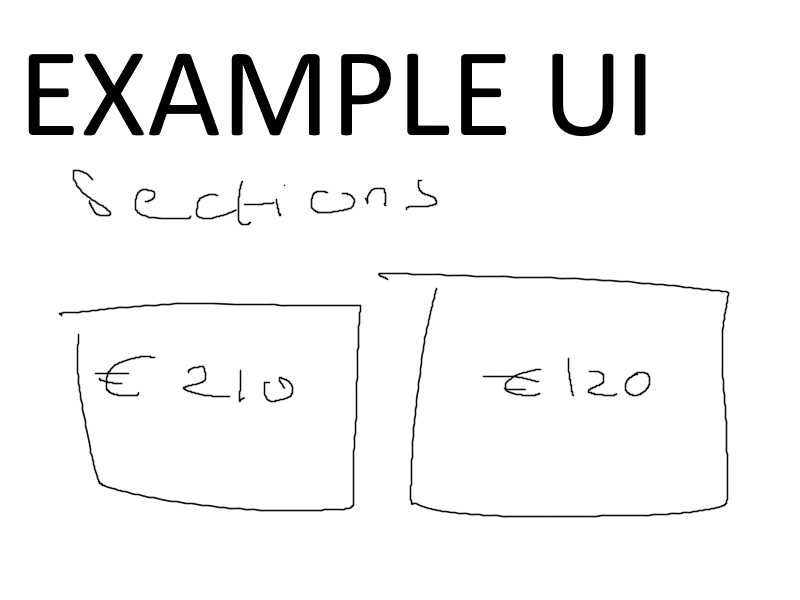 EXAMPLE UI
Sections
€ 210
€ 120